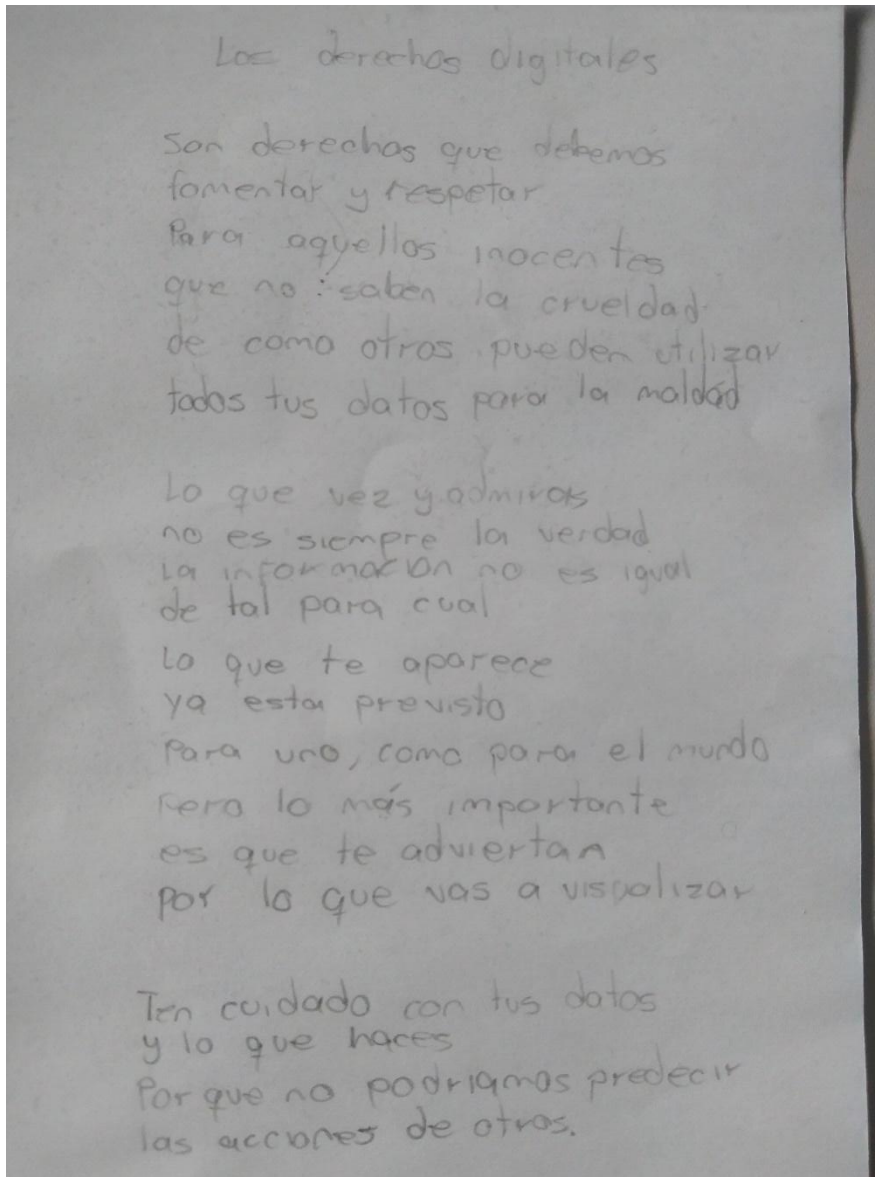 Los derechos digitales
Son derechos que debemos
fomentar y respetar
Para aquellos inocentes
que no saben la crueldad
de como otros pueden utilizar
todos tus datos para la maldad
Lo que vez y admiras
no es siempre la verdad
La información no es igual
de tal para cual
Lo que te aparece
ya esta previsto
Para uno, como para el mundo
Pero lo más importante
es que te adviertan
por lo que vas a visualizar
Ten cuidado con tus datos
y lo que haces
Por que no podriamos predecir
las acciones de otros.